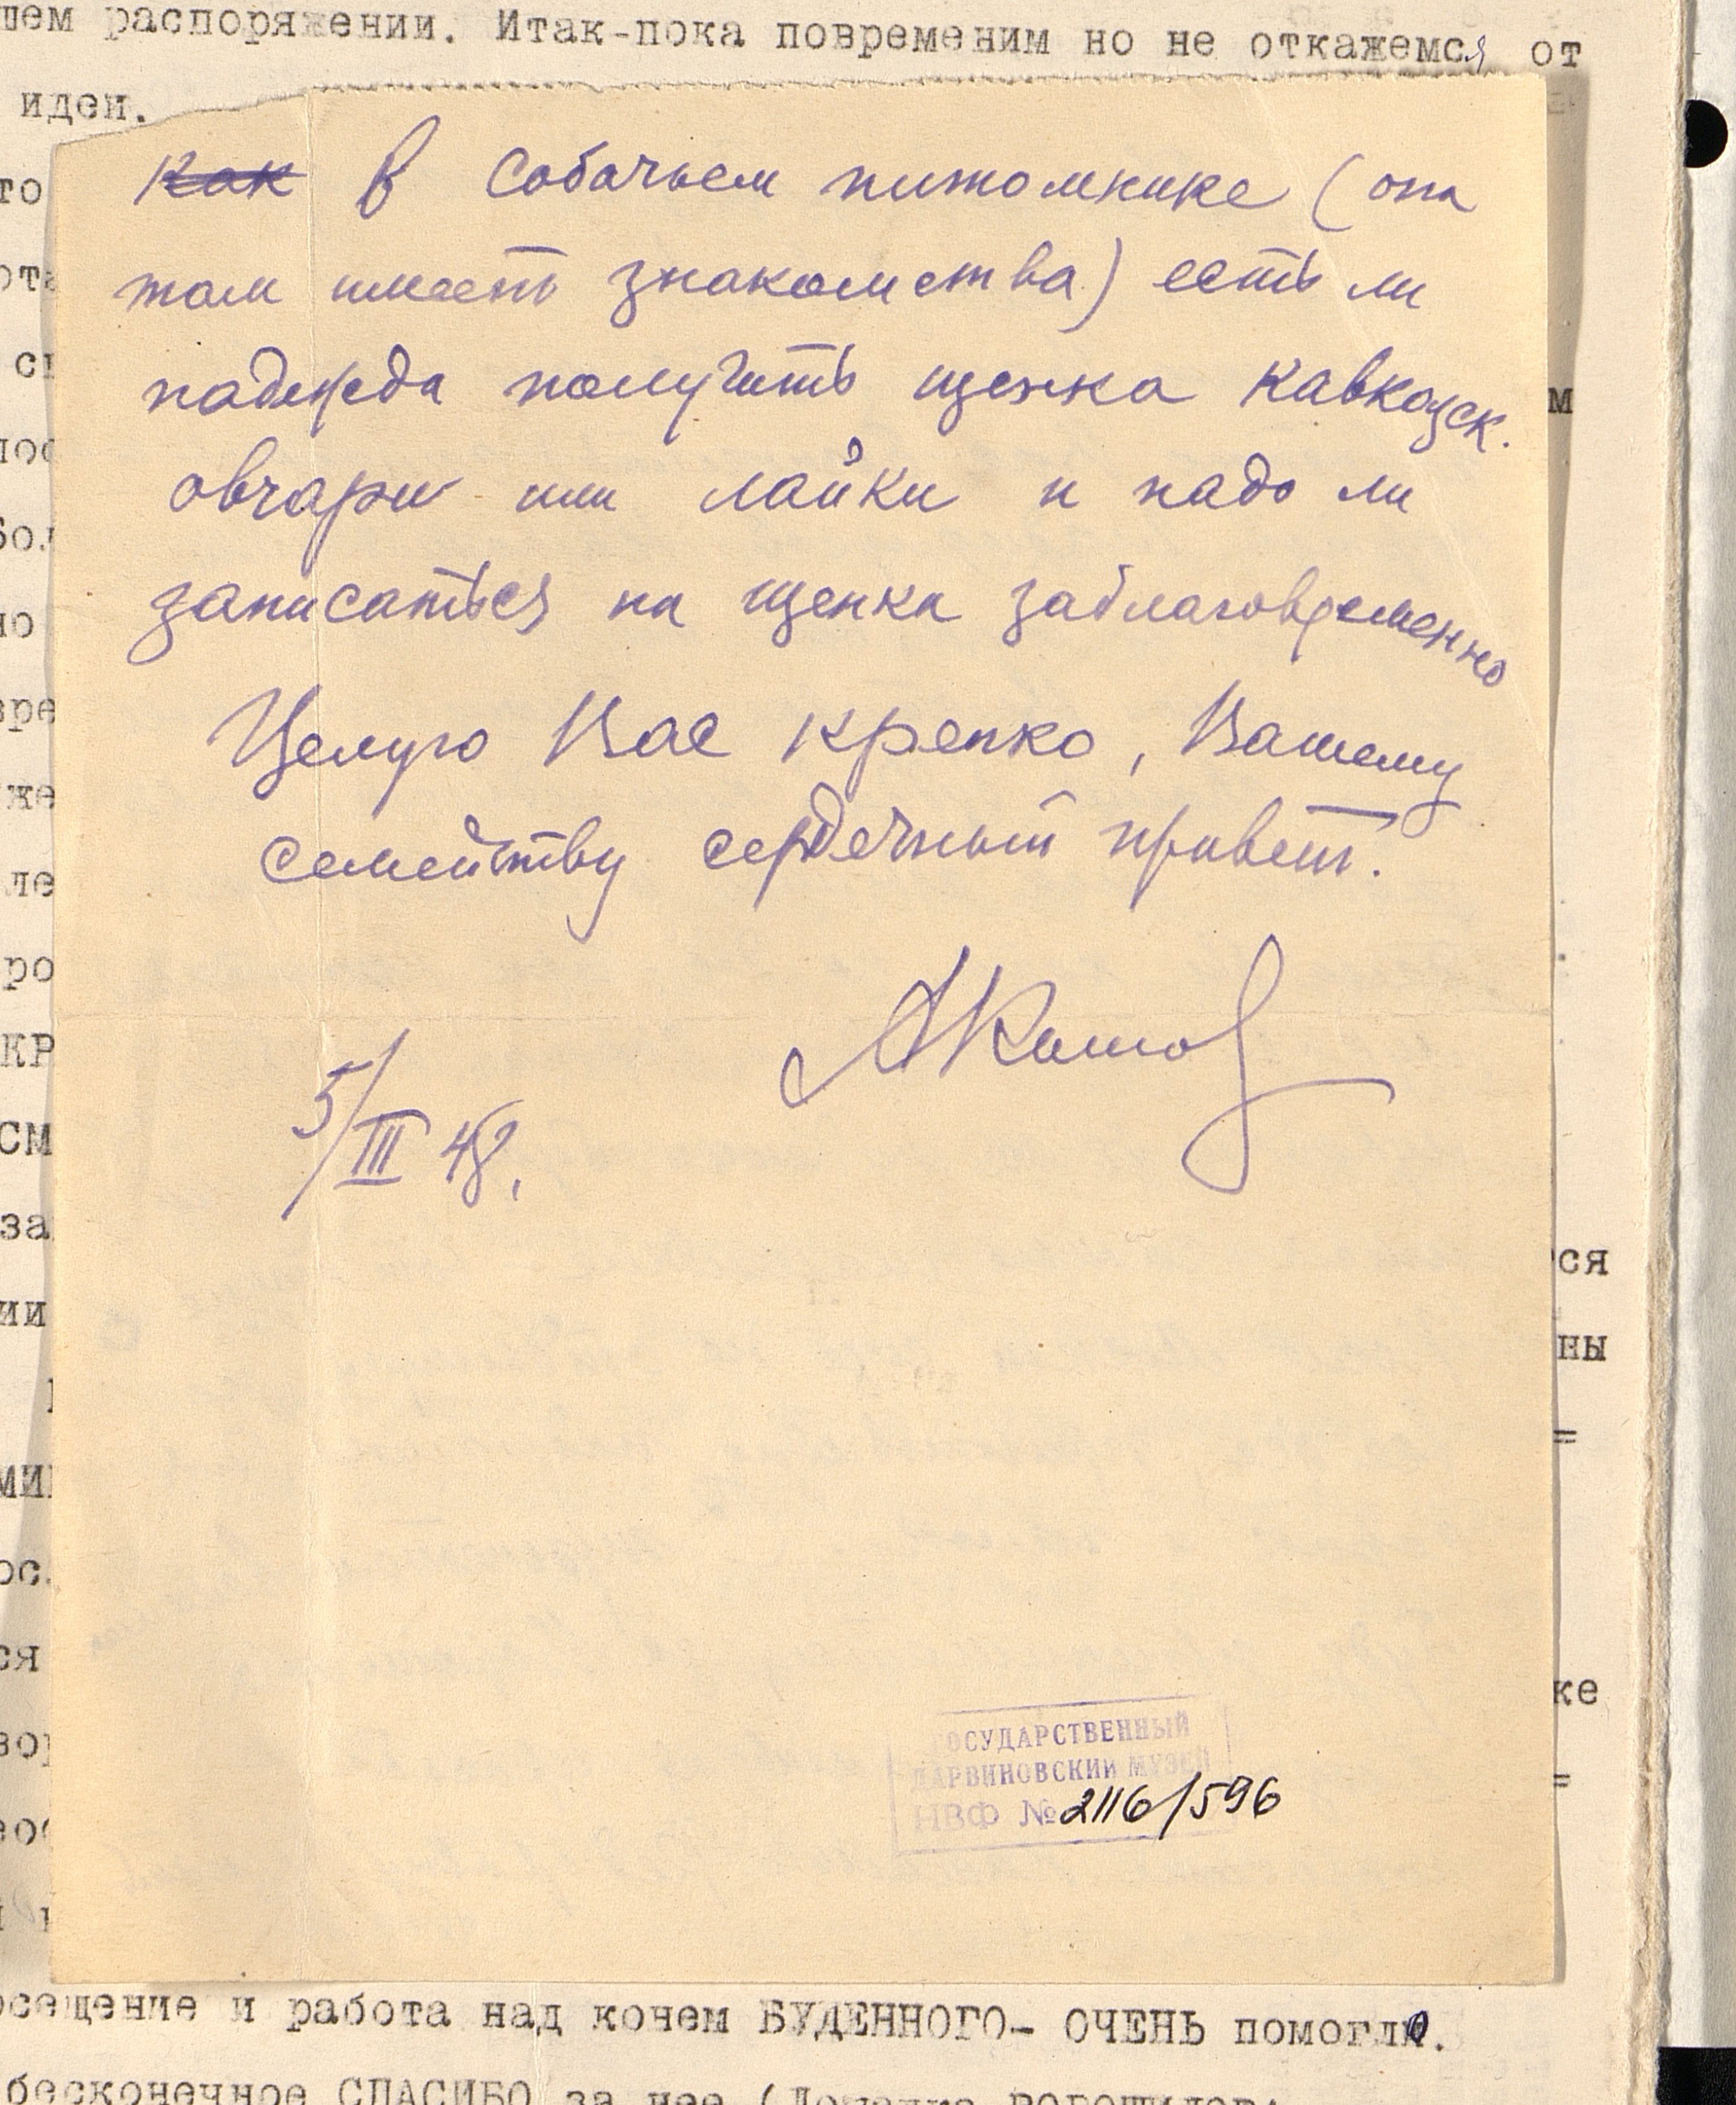 шем распоряжении. Итак-пока повременим но не откажемся от
идеи.
~~как~~ в собачьем питомнике (она
там имеет знакомства) есть ли
надежда получить щенка Кавказск.
овчарки или лайки и надо ли
записаться на щенка заблаговременно
Целую Вас крепко, Вашему
семейству сердечный привет.
АКотс
5/III 48.
ГОСУДАРСТВЕННЫЙ
ДАРВИНОВСКИЙ МУЗЕЙ
НВФ № 2116/596
осещение и работа над конем БУДЕННОГО- ОЧЕНЬ помогли.
бесконечное СПАСИБО за нее